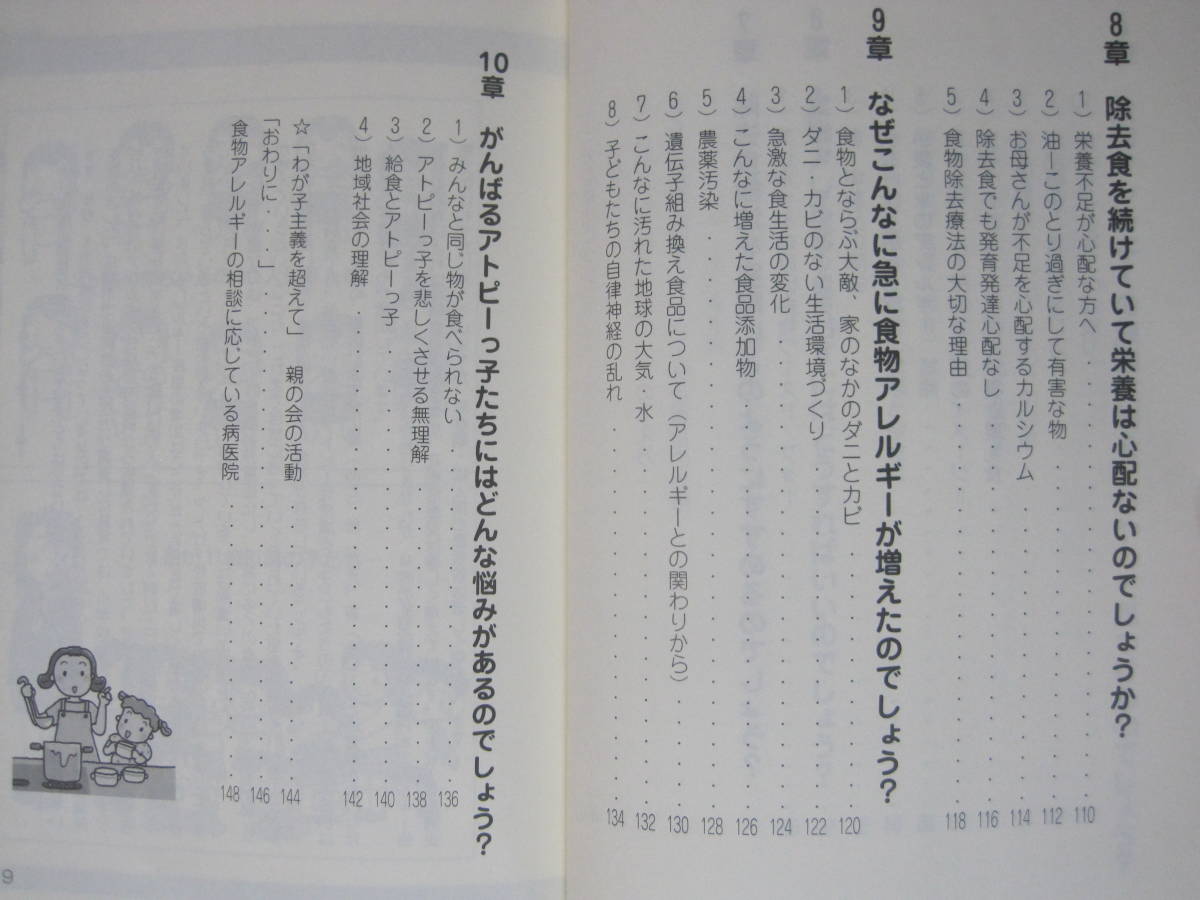 8章　除去食を続けていて栄養は心配ないのでしょうか？
1）栄養不足が心配な方へ・・・・・・・・・・110
2）油ーこのとり過ぎにして有害な物・・・・・・・・・・112
3）お母さんが不足を心配するカルシウム・・・・・・・・・・114
4）除去食でも発育発達心配なし・・・・・・・・・・116
5）食物除去療法の大切な理由・・・・・・・・・・118
9章　なぜこんなに急に食物アレルギーが増えたのでしょう？
1）食物とならぶ大敵、家のなかのダニとカビ・・・・・・・・・・120
2）ダニ・カビのない生活環境づくり・・・・・・・・・・122
3）急激な食生活の変化・・・・・・・・・・124
4）こんなに増えた食品添加物・・・・・・・・・・126
5）農薬汚染・・・・・・・・・・128
6）遺伝子組み換え食品について（アレルギーとの関わりから）・・・・・130
7）こんなに汚れた地球の大気・水・・・・・・・・・・132
8）子どもたちの自律神経の乱れ・・・・・・・・・・134
10章　がんばるアトピーっ子たちにはどんな悩みがあるのでしょう？
1）みんなと同じ物が食べられない・・・・・・・・・・136
2）アトピーっ子を悲しくさせる無理解・・・・・・・・・・138
3）給食とアトピーっ子・・・・・・・・・・140
4）地域社会の理解・・・・・・・・・・142
☆「わが子主義を超えて」　親の会の活動・・・・・・・・・・144
「おわりに・・・」・・・・・・・・・・146
食物アレルギーの相談に応じている病医院・・・・・・・・・・148
9